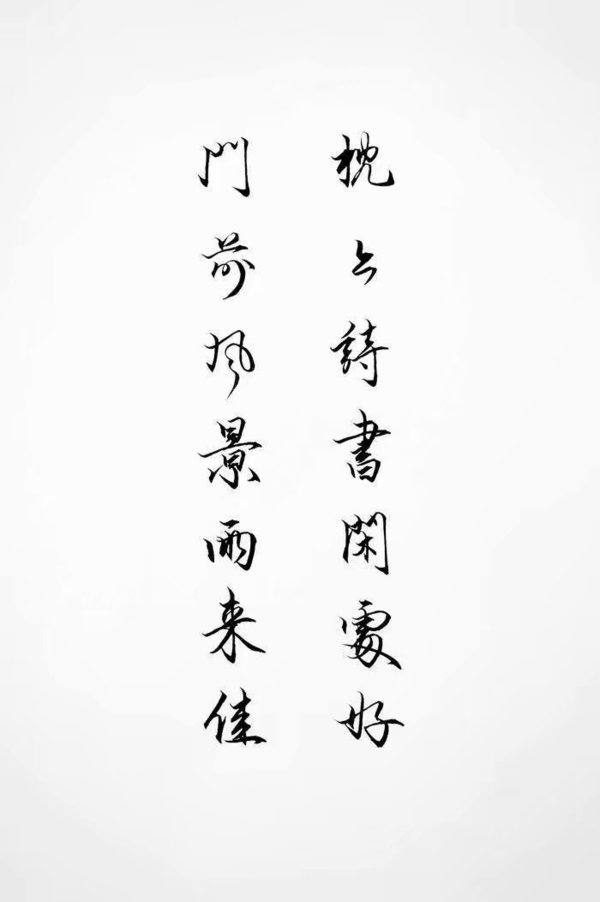 枕上詩書閑處好
門前風景雨来佳